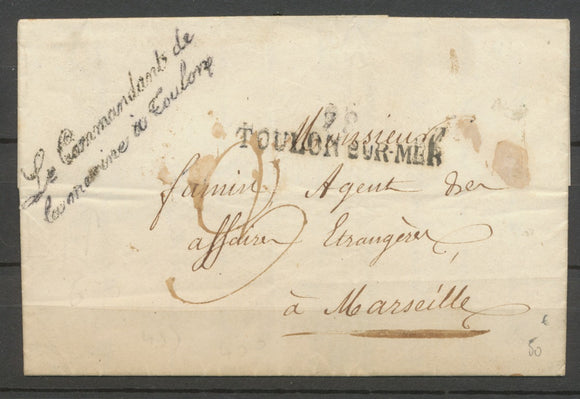 Le Commandant de
la marine à Toulon
78
TOULON SUR-MER
Monsieur
famin Agent des
affaires Etrangères
à Marseille
50